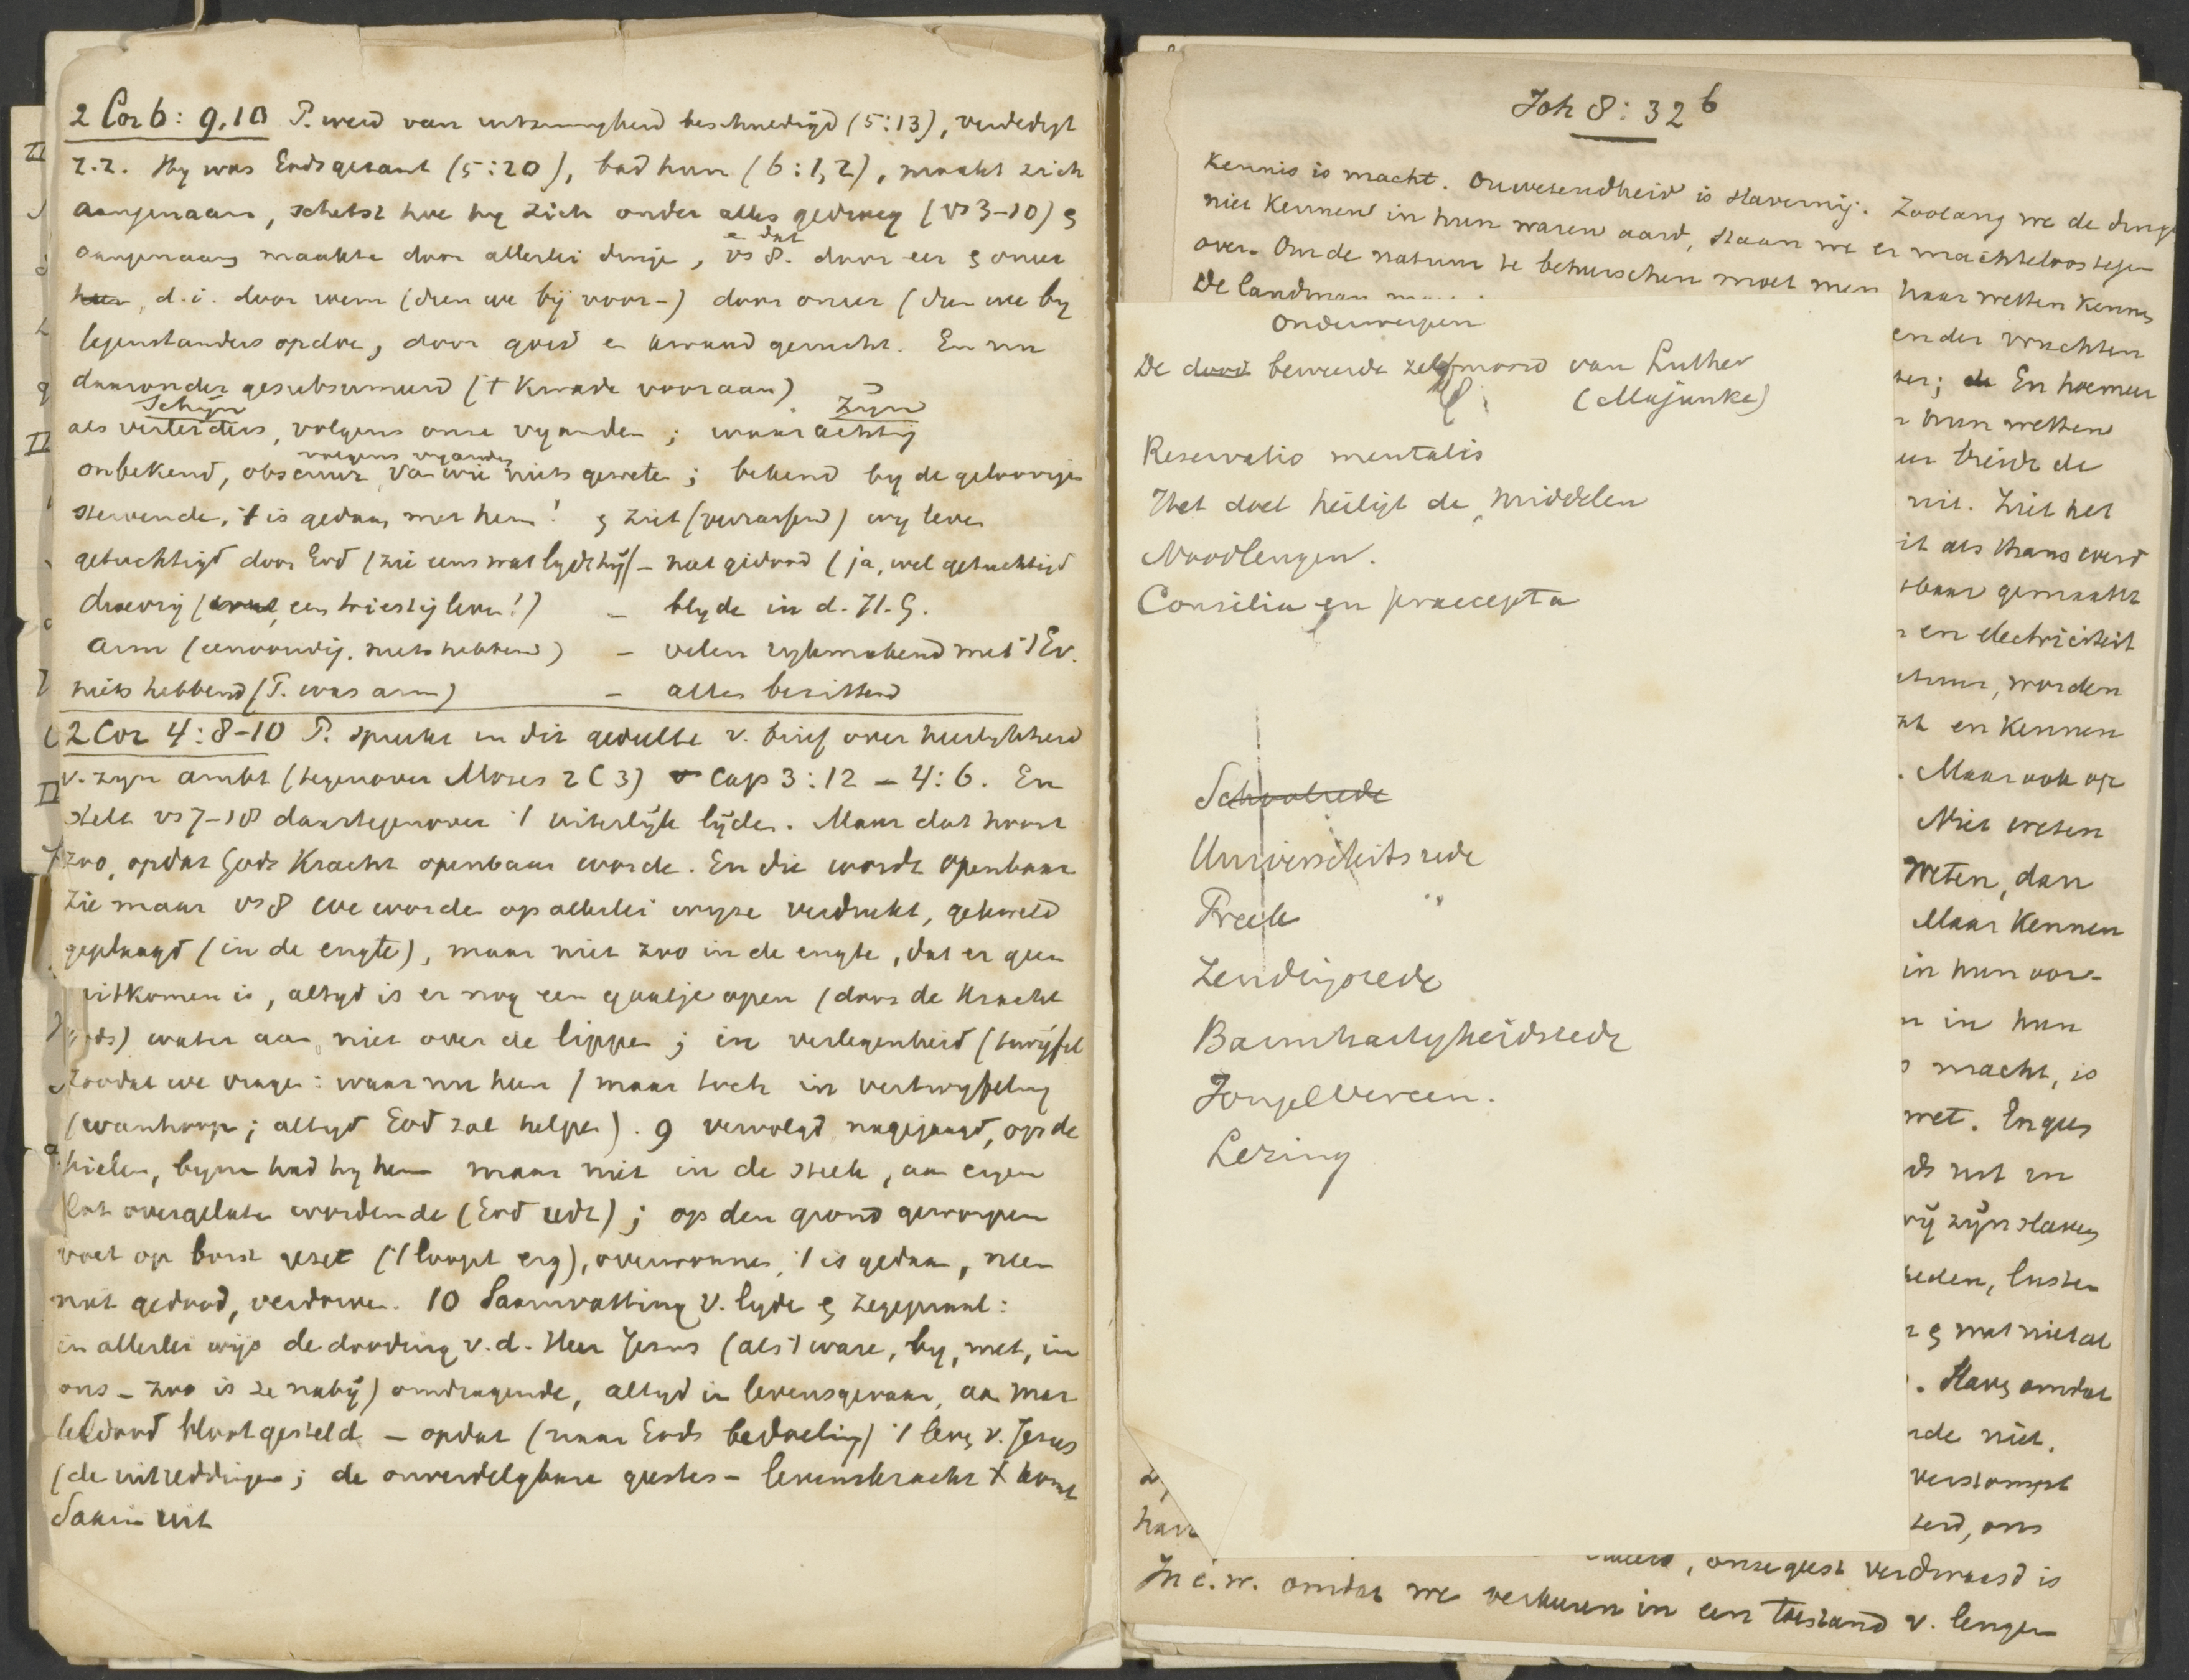 2 Cor 6: 9,10 P. werd van uitzinnigheid beschuldigd (5:13), verdedigt
z.z. Hy was Gods gezant (5:20), bad hun (6:1,2), maakt zich
aangenaam, schetst hoe hy zich onder alles gedroeg (vs 3-10) &
aangenaam maakte door allerlei dinge, vs 8. door eer & oneer
d.i. door wem (dien we bij voor-) door oneer (dien we by
tegenstanders opdoe, door goed en kwaad gerucht. En nu
daaronder gesubsumeerd (t kwade vooraan)
Schijn Zijn
als verleiders, volgens onze vyanden ; waarachtig
volgens vyanden
onbekend, obscuur, van wie niets gewete ; bekend by de geloovige
stervende, 't is gedaan met hem! & ziet (verrassend) wy leve
getuchtigd door God (zie eens wat lydt hij) – niet gedood (ja, wel getuchtigd
droevig (een triestig leve!) – blyde in d. H. G.
arm (eenvoudig, niets hebbend) – velen rykmakend met 't Ev.
niets hebbend (P. was arm) – alles bezittend
2 Cor 4: 8-10 P. spreekt in dit gedeelte v. brief over heerlykheid
v. zyn ambt (tegenover Mozes 2 C 3) Cap 3:12 – 4:6. En
stelt vs 7-18 daartegenover 't uiterlijk lijden. Maar dat moet
zoo, opdat Gods Kracht openbaar worde. En die wordt openbaar
Zie maar vs 8 we worde op allerlei wyze verdrukt, gekweld
geplaagd (in de engte), maar niet zoo in de engte, dat er geen
uitkomen is, altyd is er nog een gaatje open (door de kracht
Gods) water aan, niet over de lippen ; in verlegenheid (twijfel
zoodat we vragen: waar nu heen) maar toch in vertwyfeling
(wanhoop; altyd God zal helpen). 9 vervolgd, nagejaagd, op de
hielen, byna had hy hem maar niet in de steek, aan eigen
lot overgelate wordende (God redt) ; op den grond geworpen
voet op borst gezet ('t loopt erg), overwonnen, 't is gedaan, neen
niet gedood, verdorve. 10 Saamvatting v. lyde & zegepraal:
in allerlei wijs de dooding v. d. Heer Jezus (als 't ware, by, met, in
ons – zoo is ze nabij) omdragende, altyd in levensgevaar, aan mar
teldood blootgesteld – opdat (naar Gods bedoeling) 't leve v. Jezus
(de uitreddingen; de onverdelgbare geestes – levenskracht X komt
daarin uit
Joh 8: 32 b
Kennis is macht. Onwetendheid is slavernij. Zoolang we de dinge
niet Kennen in hun waren aard, staan we er machteloos tegen
over. Om de natuur te beheerschen moet men haar wetten kennen
De landman
Onderwerpen
De dood beweerde zelfmoord van Luther
(Majunke)
Reservatio mentalis
Het doel heiligt de middelen
Noodleugen.
Consilia en praecepta
Schoolrede
Universiteitsrede
Preek "
Zendingsrede
Barmhartigheidsrede
Jongel Vereen.
Lezing
ender vruchten
ter; En hoemeer
hun wetten
breidt de
uit. Ziet het
it als thans werd
tbaar gemaakt
en electriciteit
tuur, worden
en Kennen
. Maar ook op
Niet weten
weten, dan
Maar Kennen
in hun oor-
n in hun
macht, is
wet.
rust in
wij zijn slaven
eden, lusten
& wat niet al
. Slaaf omdat
niet.
verstompt
terd, ons
, onze geest verdwaasd is
In é.w. omdat we verkeeren in een toestand v. leugen